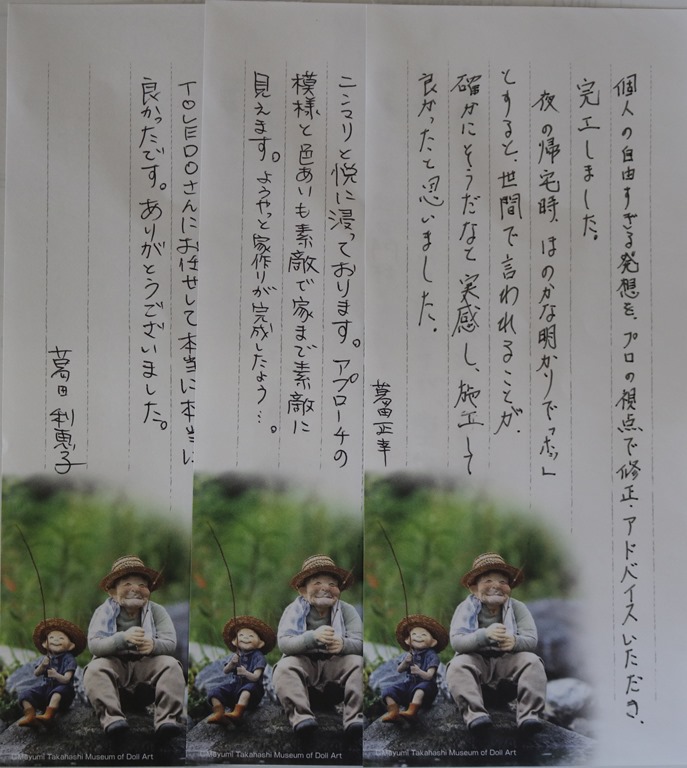 個人の自由すぎる発想を、プロの視点で修正・アドバイスいただき、
完工しました。
夜の帰宅時、ほのかな明かりで「ホッ」
とすると、世間で言われることが、
確かにそうだなと実感し、施工して
良かったと思いました。
葛田正幸
ニンマリと悦に浸っております。アプローチの
模様と色あいも素敵で家まで素敵に
見えます。ようやっと家作りが完成したよう…。
TOLEDOさんにお任せして本当に本当に
良かったです。ありがとうございました。
葛田利恵子
©Mayumi Takahashi Museum of Doll Art
©Mayumi Takahashi Museum of Doll Art
©Mayumi Takahashi Museum of Doll Art